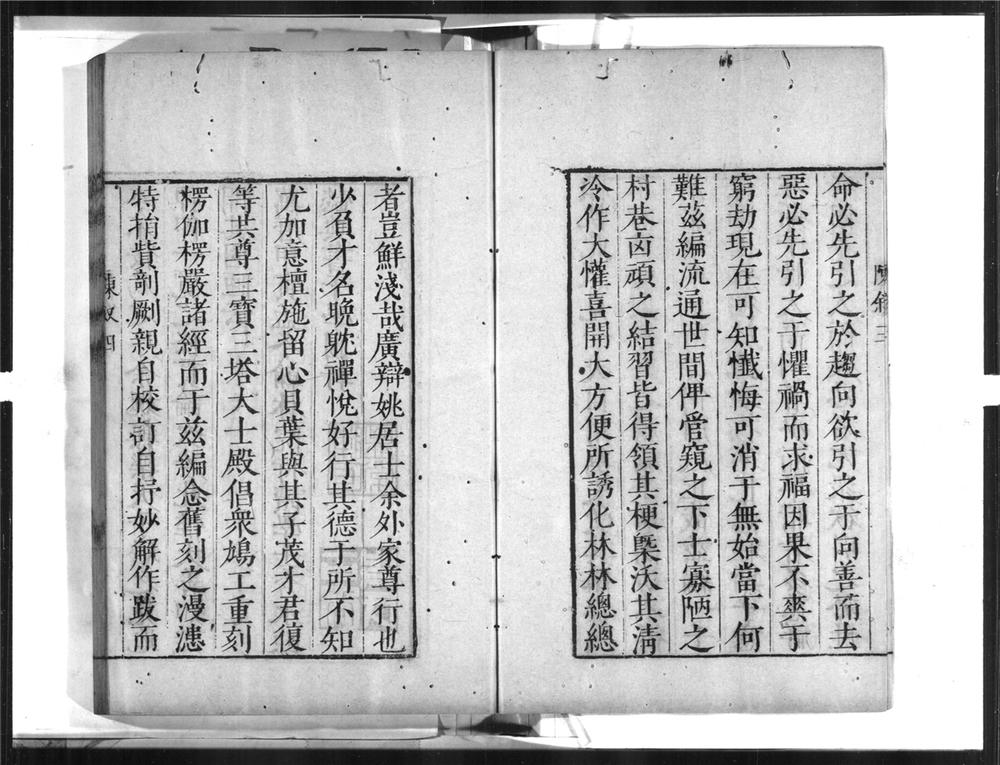 命必先引之於趨向欲引之于向善而去
惡必先引之于懼禍而求福因果不爽于
窮劫現在可知懺悔可消于無始當下何
難茲編流通世間俾管窺之下士寡陋之
村巷囟頑之結習皆得領其梗槩沃其清
泠作大懽喜開大方便所誘化林林總總
者豈鮮淺哉廣辯姚居士余外家尊行也
少負才名晚躭禪悅好行其德于所不知
尤加意檀施留心貝葉與其子茂才君復
等共尊三寶三塔大士殿倡衆鳩工重刻
楞伽楞嚴諸經而于茲編念舊刻之漫漶
特捐貲剞劂親自校訂自抒妙解作跋而
陳叙四